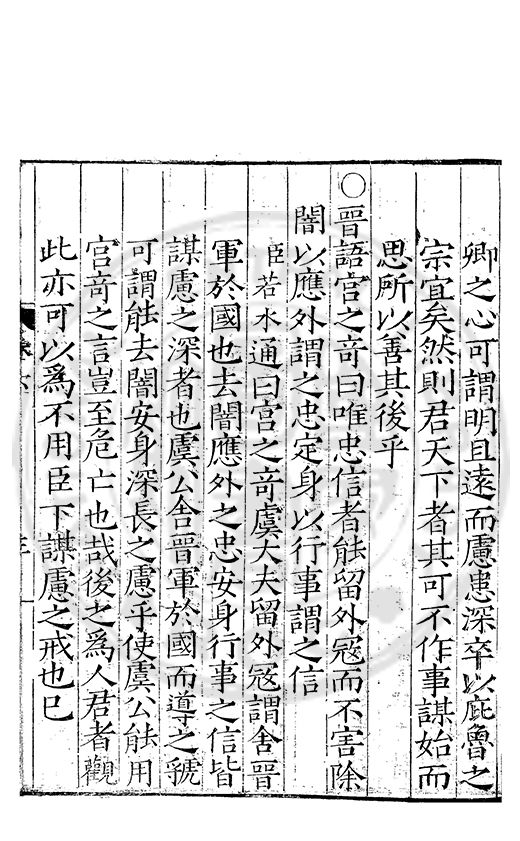 卿之心可謂明且遠而慮患深卒以庇魯之
宗宜矣然則君天下者其可不作事謀始而
思所以善其後乎
○晉語宮之奇曰唯忠信者能留外寇而不害除
闇以應外謂之忠定身以行事謂之信
臣若水通曰宮之奇虞大夫留外寇謂舍晉
軍於國也去闇應外之忠安身行事之信皆
謀慮之深者也虞公舍晉軍於國而導之虢
可謂能去闇安身深長之慮乎使虞公能用
宮奇之言豈至危亡也哉後之為人君者觀
此亦可以為不用臣下謀慮之戒也已